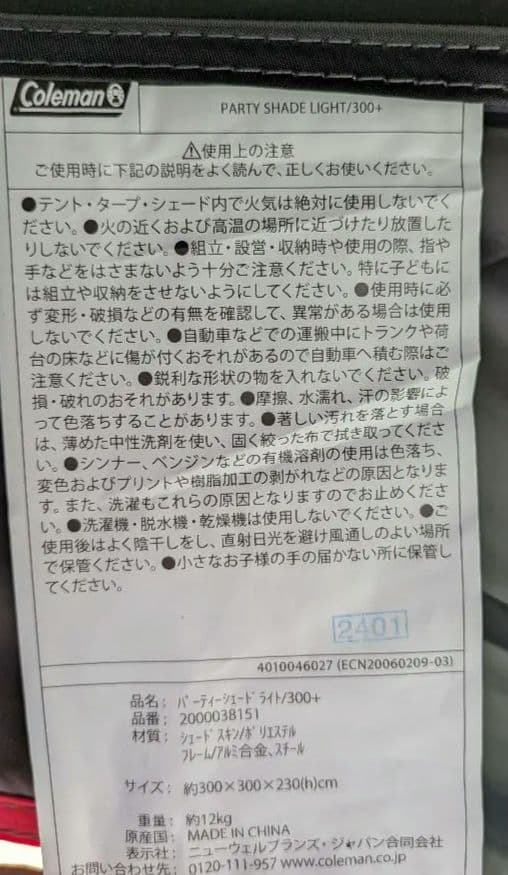 Coleman
PARTY SHADE LIGHT/300+
⚠使用上の注意
ご使用時に下記の説明をよく読んで、正しくお使いください。
●テント・タープ・シェード内で火気は絶対に使用しないでく
ださい。●火の近くおよび高温の場所に近づけたり放置した
りしないでください。●組立・設営・収納時や使用の際、指や
手などをはさまないよう十分ご注意ください。特に子どもに
は組立や収納をさせないようにしてください。●使用時に必
ず変形・破損などの有無を確認して、異常がある場合は使用
しないでください。●自動車などでの運搬中にトランクや荷
台の床などに傷が付くおそれがあるので自動車へ積む際はご
注意ください。●鋭利な形状の物を入れないでください。破
損・破れのおそれがあります。●摩擦、水濡れ、汗の影響によ
って色落ちすることがあります。●著しい汚れを落とす場合
は、薄めた中性洗剤を使い、固く絞った布で拭き取ってくださ
い。●シンナー、ベンジンなどの有機溶剤の使用は色落ち、
変色およびプリントや樹脂加工の剥がれなどの原因となりま
す。また、洗濯もこれらの原因となりますのでお止めくださ
い。●洗濯機・脱水機・乾燥機は使用しないでください。●ご
使用後はよく陰干しをし、直射日光を避け風通しのよい場所
で保管ください。●小さなお子様の手の届かない所に保管し
てください。
2401
4010046027 (ECN20060209-03)
品名: パーティーシェードライト/300+
品番: 2000038151
材質: シェードスキン/ポリエステル
フレーム/アルミ合金、スチール
サイズ: 約300×300×230(h)cm
重量: 約12kg
原産国: MADE IN CHINA
表示社: ニューウェルブランズ・ジャパン合同会社
お問い合わせ先: 0120-111-957 www.coleman.co.jp